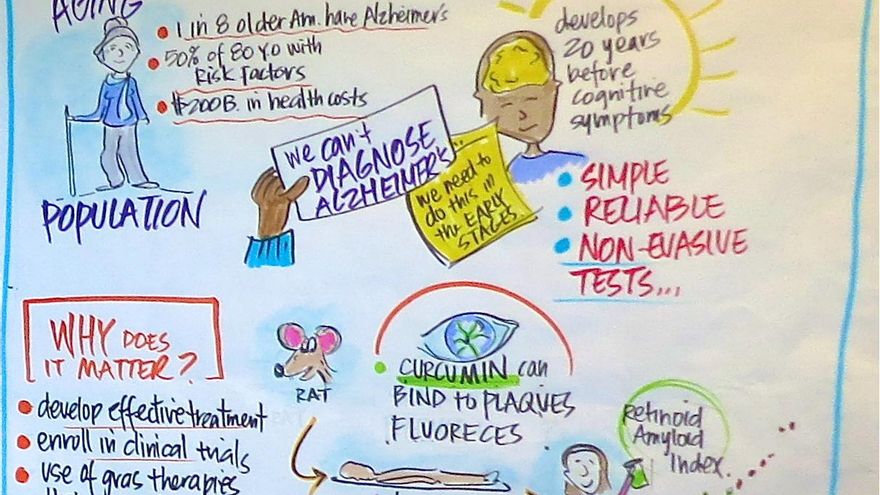 AGING
1 in 8 older Am. have Alzheimer's
50% of 80 YO with
Risk Factors
$200B. in health costs
POPULATION
we can't
DIAGNOSE
ALZHEIMER'S...
we need to
do this in
the EARLY
STAGES
develops
20 years
before
cognitive
symptoms
SIMPLE
RELIABLE
NON-EVASIVE
TESTS...
WHY DOES
IT MATTER?
develop effective treatment
enroll in clinical trials
use of gras therapies
RAT
CURCUMIN can
BIND to PLAQUES
FLUORECES
Retinoid
Amyloid
Index